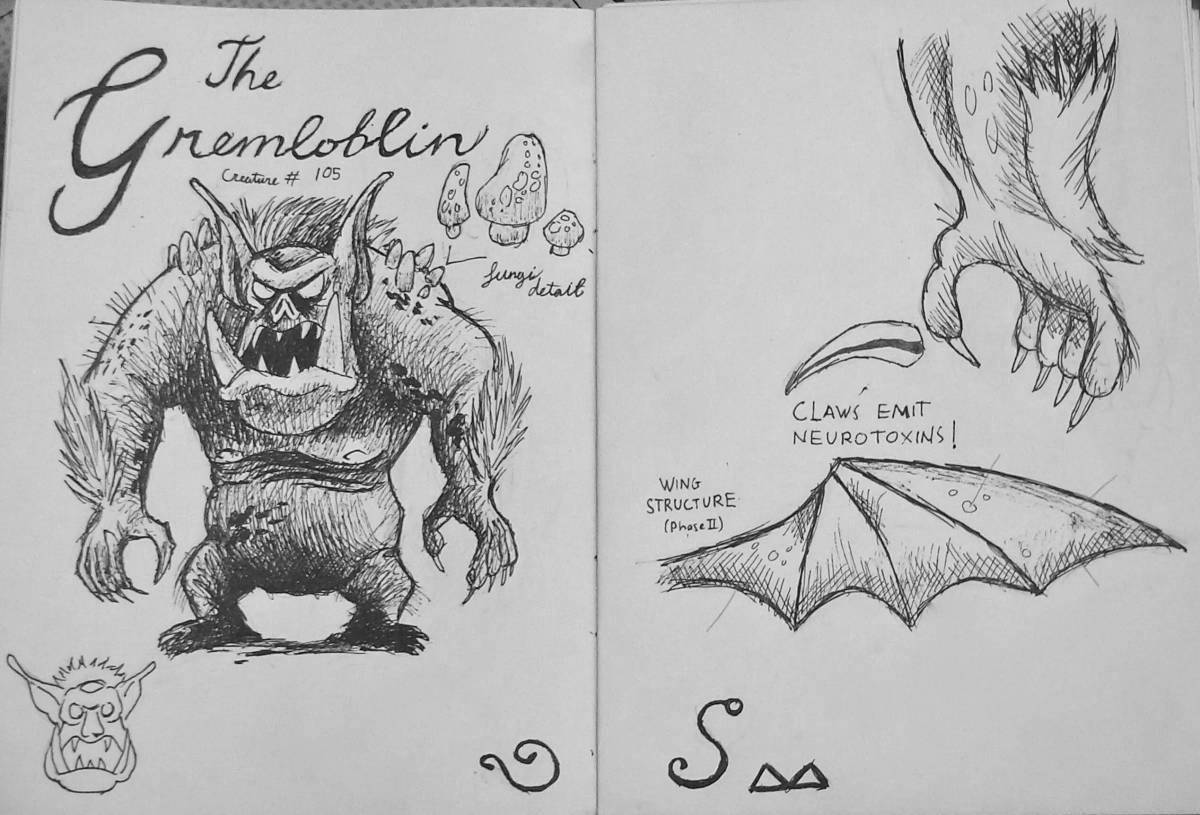 The
Gremloblin
Creature # 105
fungi
detail
CLAWS EMIT
NEUROTOXINS!
WING
STRUCTURE
(Phase II)